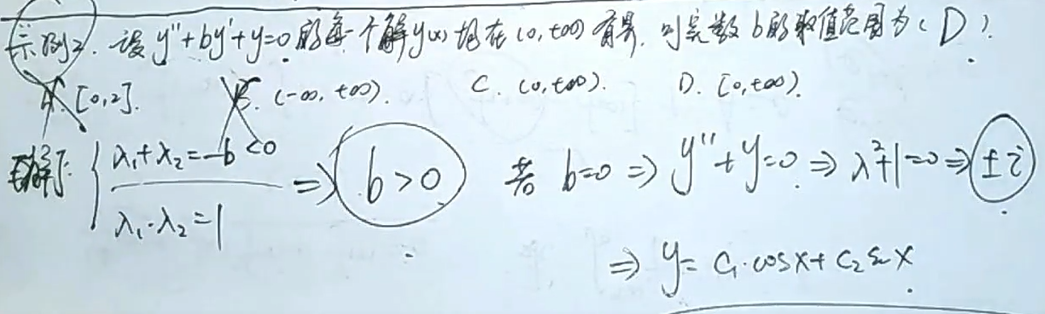 示例2. 设 y''+by'+y=0 的每一个解 y(x) 均在 (0,+∞) 有界, 则实数 b 的取值范围为 ( D ).
A. [0,2]. B. (-∞,+∞). C. (0,+∞). D. [0,+∞).
解: { λ₁+λ₂=-b<0 ⇒ b>0 若 b=0 ⇒ y''+y=0 ⇒ λ²+1=0 ⇒ ±i
λ₁·λ₂=1
⇒ y= C₁·cosx+C₂ sin x.